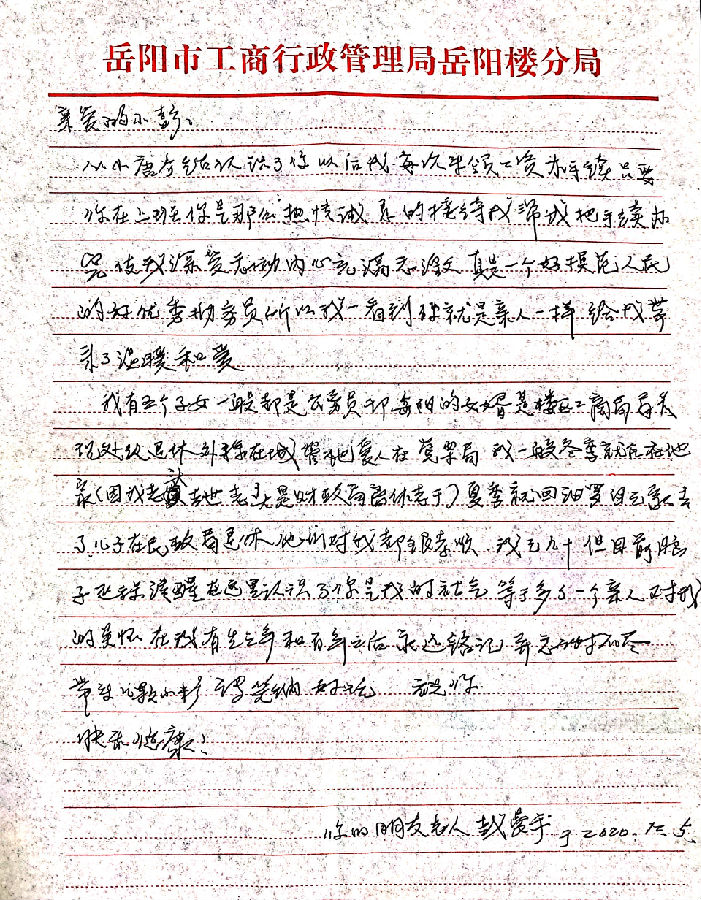 岳阳市工商行政管理局岳阳楼分局
亲爱的小彭:
从小唐介绍认识了你以后我每次来领工资办手续只要
你在上班你是那么热情诚恳的接待我帮我把手续办
完使我深受感动内心充满感激真是一个好模范人民
的好优秀服务员所以我一看到你就是亲人一样给我带
来了温暖和爱
我有五个子女一般都是公务员 的女婿是楼区工商局局长
现处级退休 在城 他爱人在 局我一般冬季就住在她
家(因我老 她老头是财政局离休老干)夏季就回汨罗自己家去
了儿子在民政局退休他们对我都很孝顺 我已九十但目前脑
子还清醒在这里认识了你是我的福气等于多了一个亲人 对我
的关怀在我有生之年和百年之后永远铭记
小 请笑纳 好吃 祝你
快乐健康!
你的朋友老人 彭爱平 于2020.12.5.